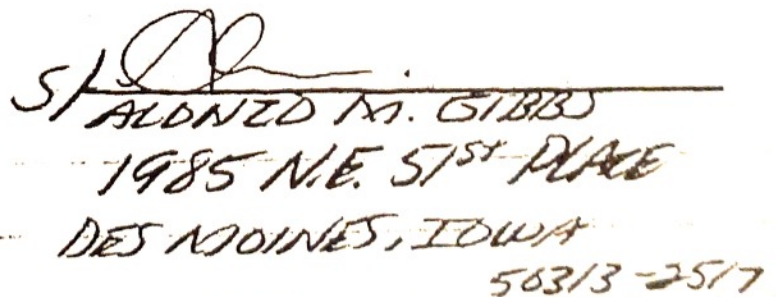 S/
ALONZO M. GIBBS
1985 N.E. 51ST PLACE
DES MOINES, IOWA
50313-2517